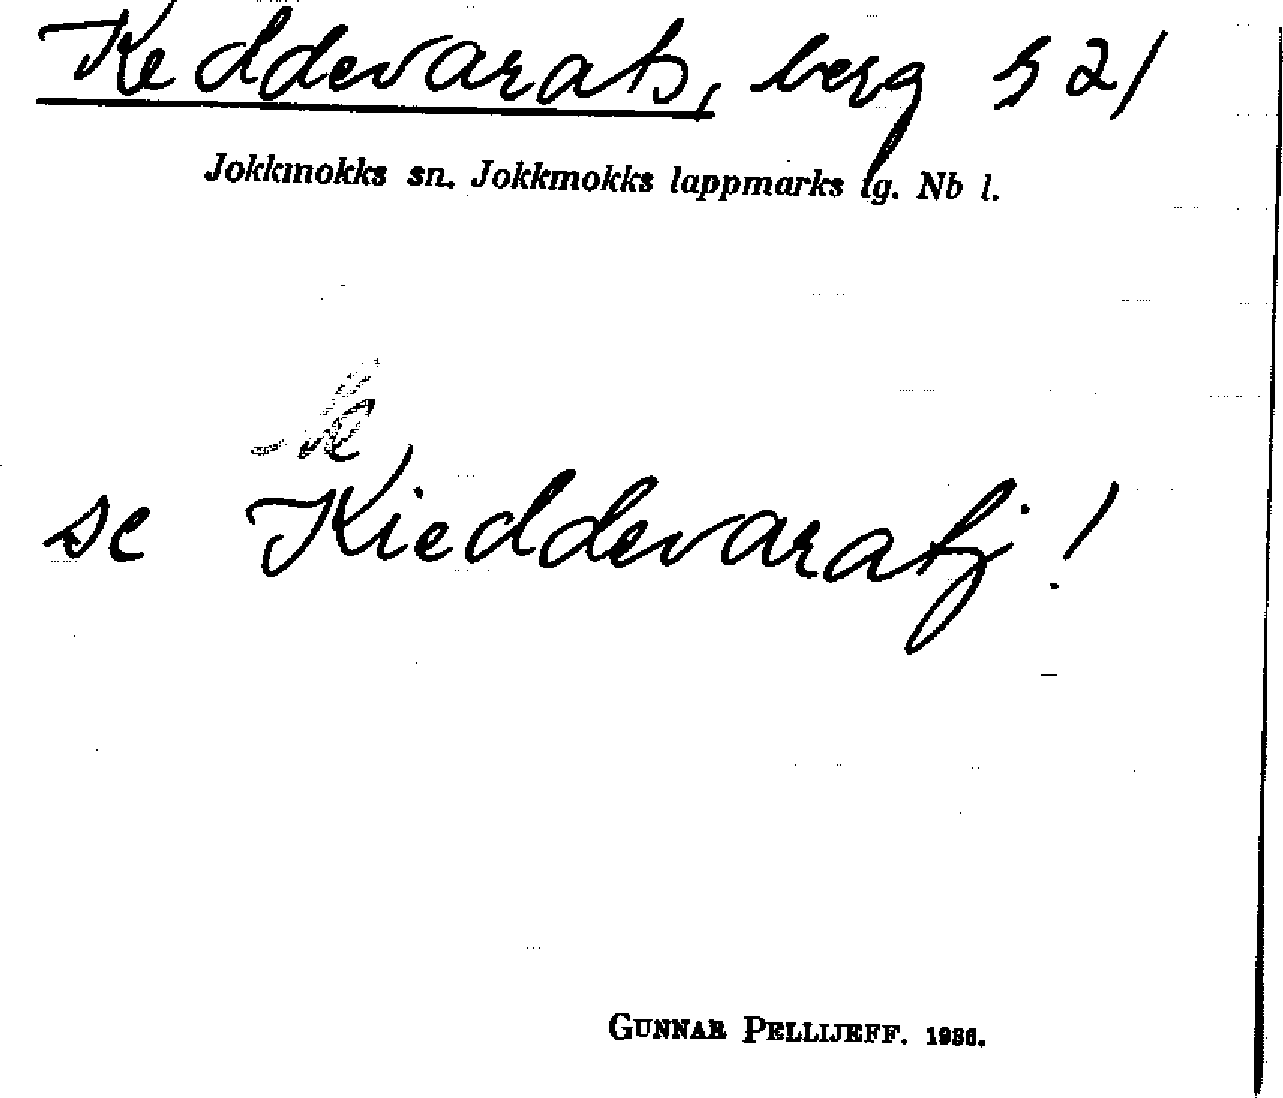 Keddevarats, berg 521
Jokkmokks sn. Jokkmokks lappmarks tg. Nb l.
se Kieddevaratj!
GUNNAR PELLIJEFF. 1936.